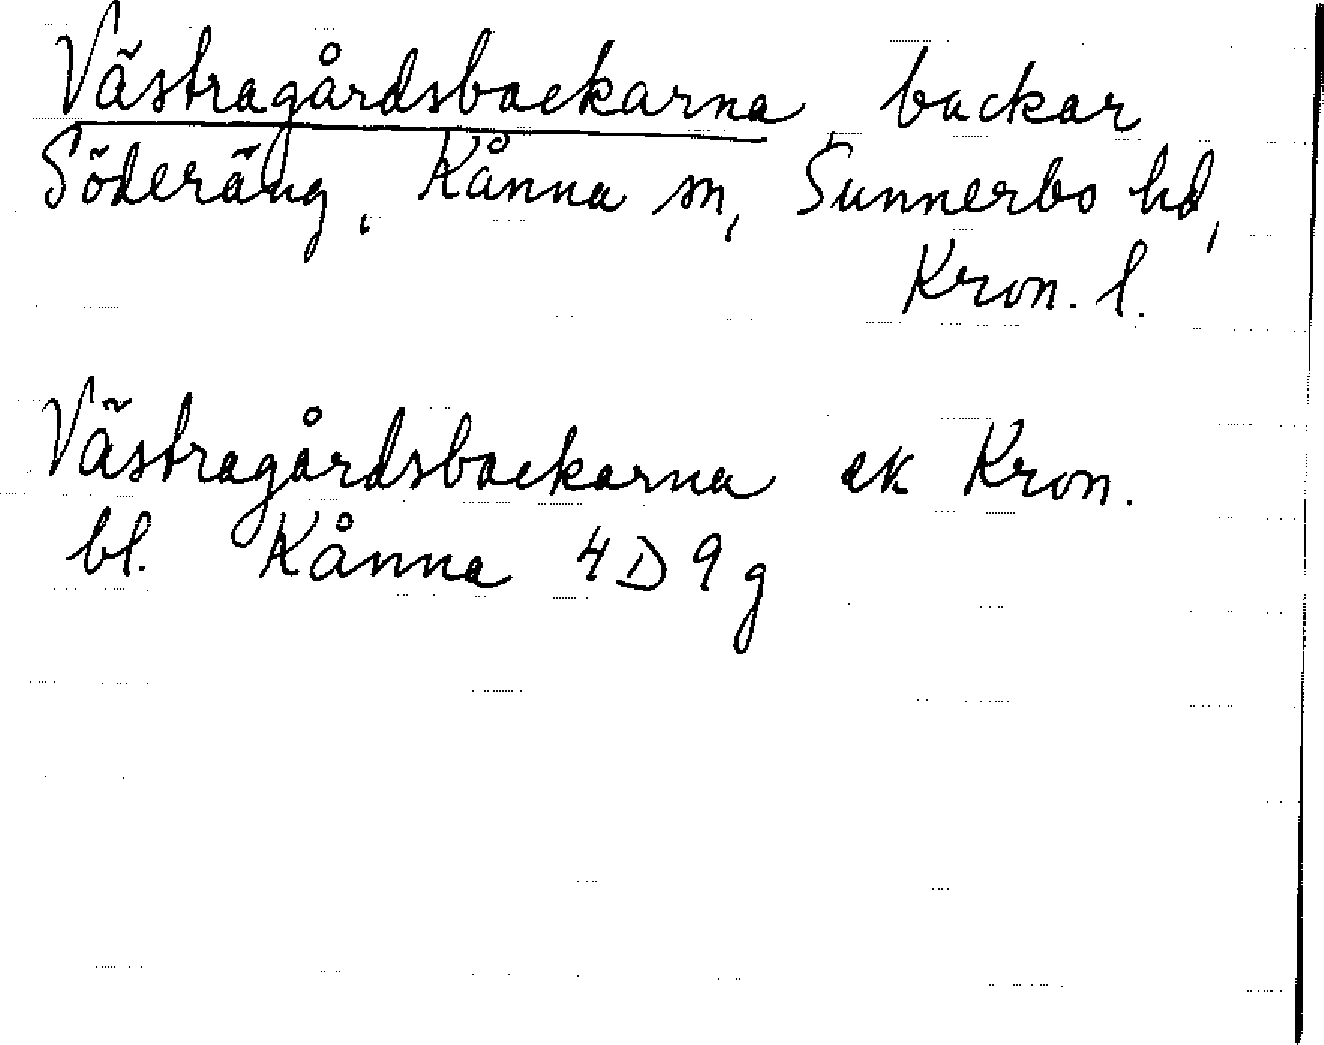 Västragårdsbackarna backar
Söderäng, Kånna sn, Sunnerbo hd,
Kron. l.
Västragårdsbackarna ek Kron.
bl. Kånna 4D 9g